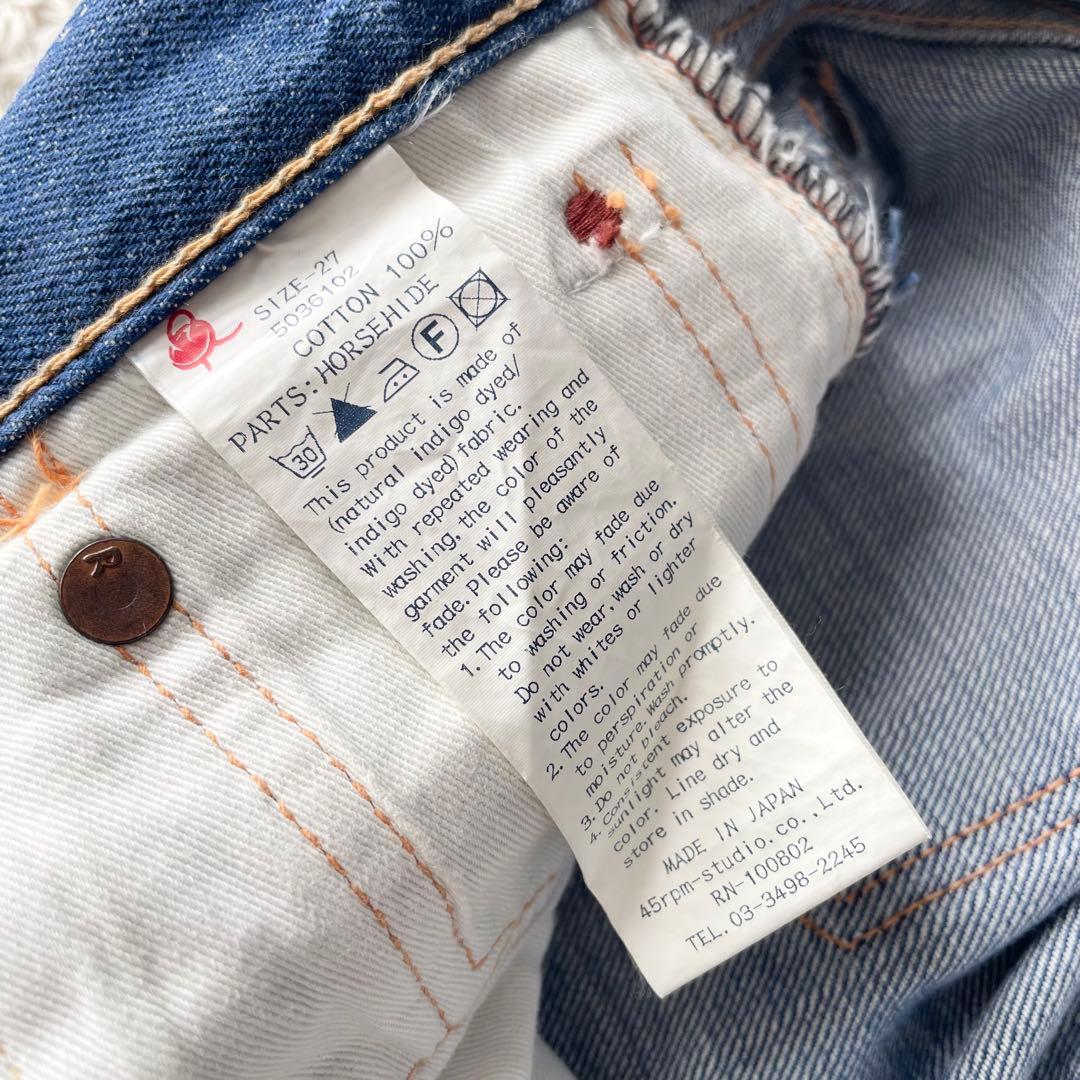 SIZE-27
5036102
COTTON 100%
PARTS:HORSEHIDE
30
F
This product is made of
(natural indigo dyed/
indigo dyed)fabric.
With repeated wearing and
washing, the color of the
garment will pleasantly
fade. Please be aware of
the following:
1. The color may fade due
to washing or friction.
Do not wear,wash or dry
with whites or lighter
colors.
2. The color may fade due
to perspiration or
moisture. Wash promptly.
3. Do not bleach.
4. Consistent exposure to
sunlight may alter the
color. Line dry and
store in shade.
MADE IN JAPAN
45rpm-studio.co.,Ltd.
RN-100802
TEL.03-3498-2245
R